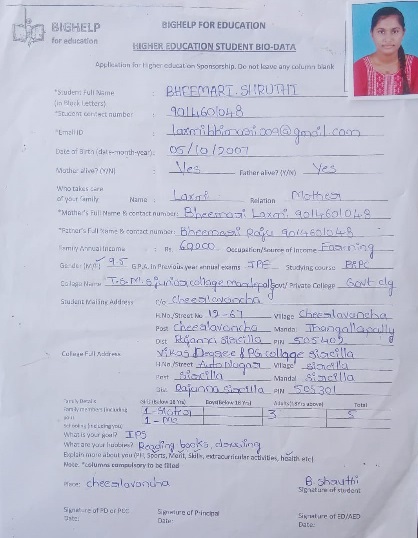 BIGHELP
for education
BIGHELP FOR EDUCATION
HIGHER EDUCATION STUDENT BIO-DATA
Application for Higher education Sponsorship. Do not leave any column blank
*Student Full Name : BHEEMARI SHRUTHI
(in Block Letters)
*Student contact number : 9014601048
*Email ID :
Date of Birth (date-month-year): 05/10/2007
Mother alive? (Y/N) : Yes Father alive? (Y/N) Yes
Who takes care
of your family Name : Laxmi Relation Mother
*Mother's Full Name & contact number: Bheemari Laxmi 9014601048
*Father's Full Name & contact number: Bheemari Raju 9014601048
Family Annual Income : Rs. 60000 Occupation/Source of Income Farming
Gender (M/F) 9.5 G.P.A. In Previous year annual exams IPE Studying course
College Name junior college Govt/ Private College Govt clg
Student Mailing Address C/o Cheerlavancha
H.No./Street No 19-67 Village Cheerlavancha
Post Cheerlavancha Mandal Thangallapally
Dist Rajanna Sircilla PIN 505405
College Full Address Vikas Degree & PG college sircilla
H.No./Street Auto Nagar Village Sircilla
Post Sircilla Mandal Sircilla
Dist Rajanna Sircilla PIN 505301
Family Details Girls (Below 18 Yrs) Boys (Below 18 Yrs) Adults (18 Yrs above) Total
Family members (including you) 1-Sister 3 5
(including you) 1-Me
What is your goal? IPS
What are your hobbies? Reading books, drawing
Explain more about you (PH, Sports, Merit, Skills, extracurricular activities, health etc)
Note: *columns compulsory to be filled
Place: cheerlavancha B shruthi
Signature of student
Signature of PD or PCC Signature of Principal Signature of ED/AED
Date: Date: Date: